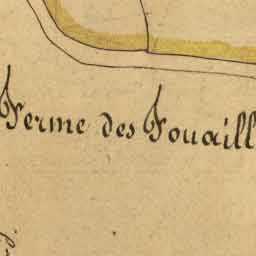 Ferme des Fouaill